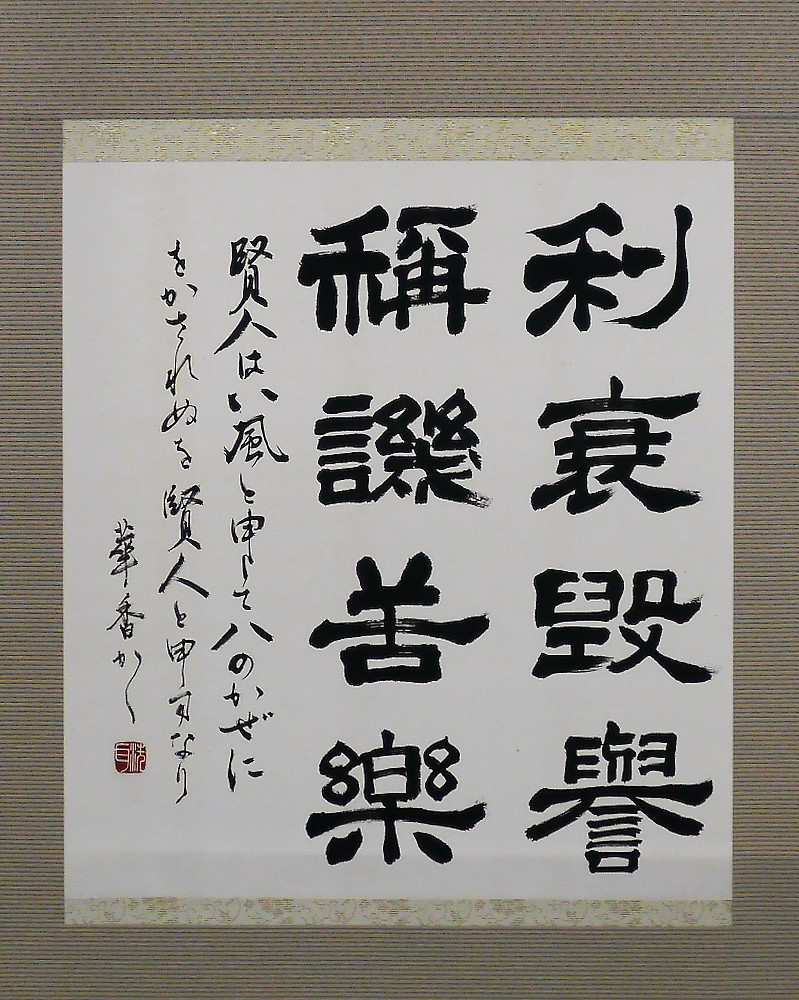 利衰毀譽
稱譏苦樂
賢人は八風と申して八のかぜに
をかされぬを賢人と申すなり
華香かく